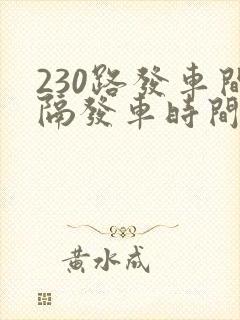 230路發車間
隔發車時間
黃水成